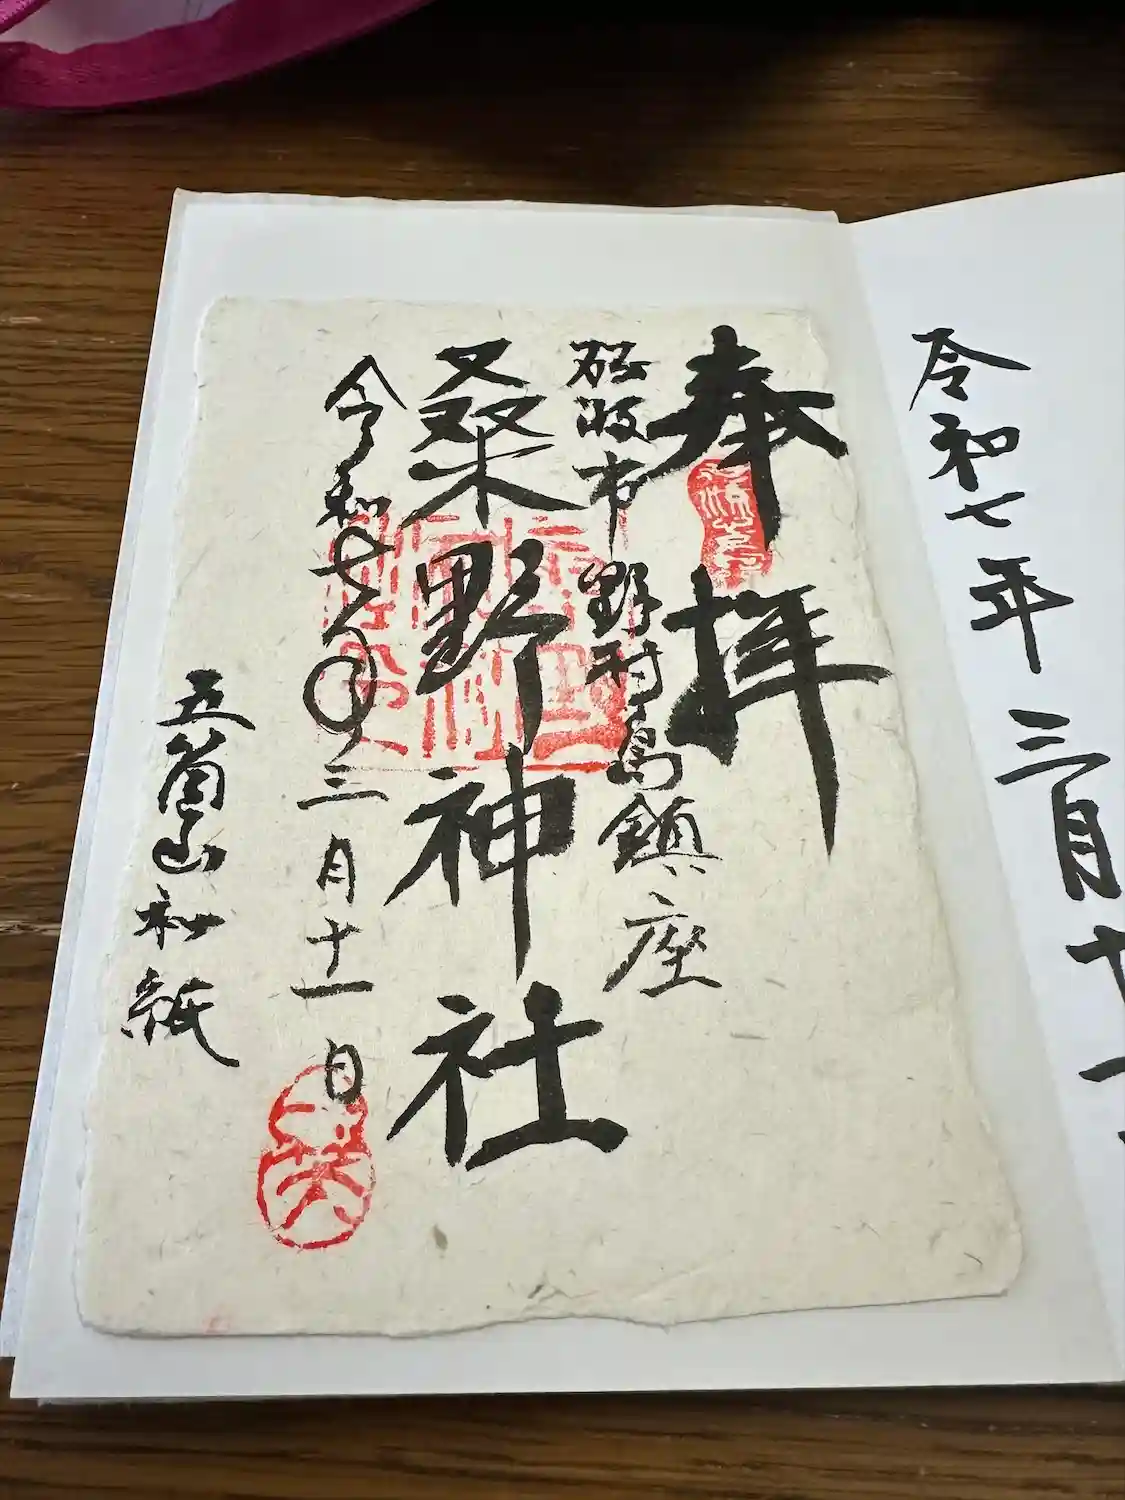 令和七年三月十一
奉拝
砺波市野村島鎮座
桒野神社
令和七年三月十一日
五箇山和紙